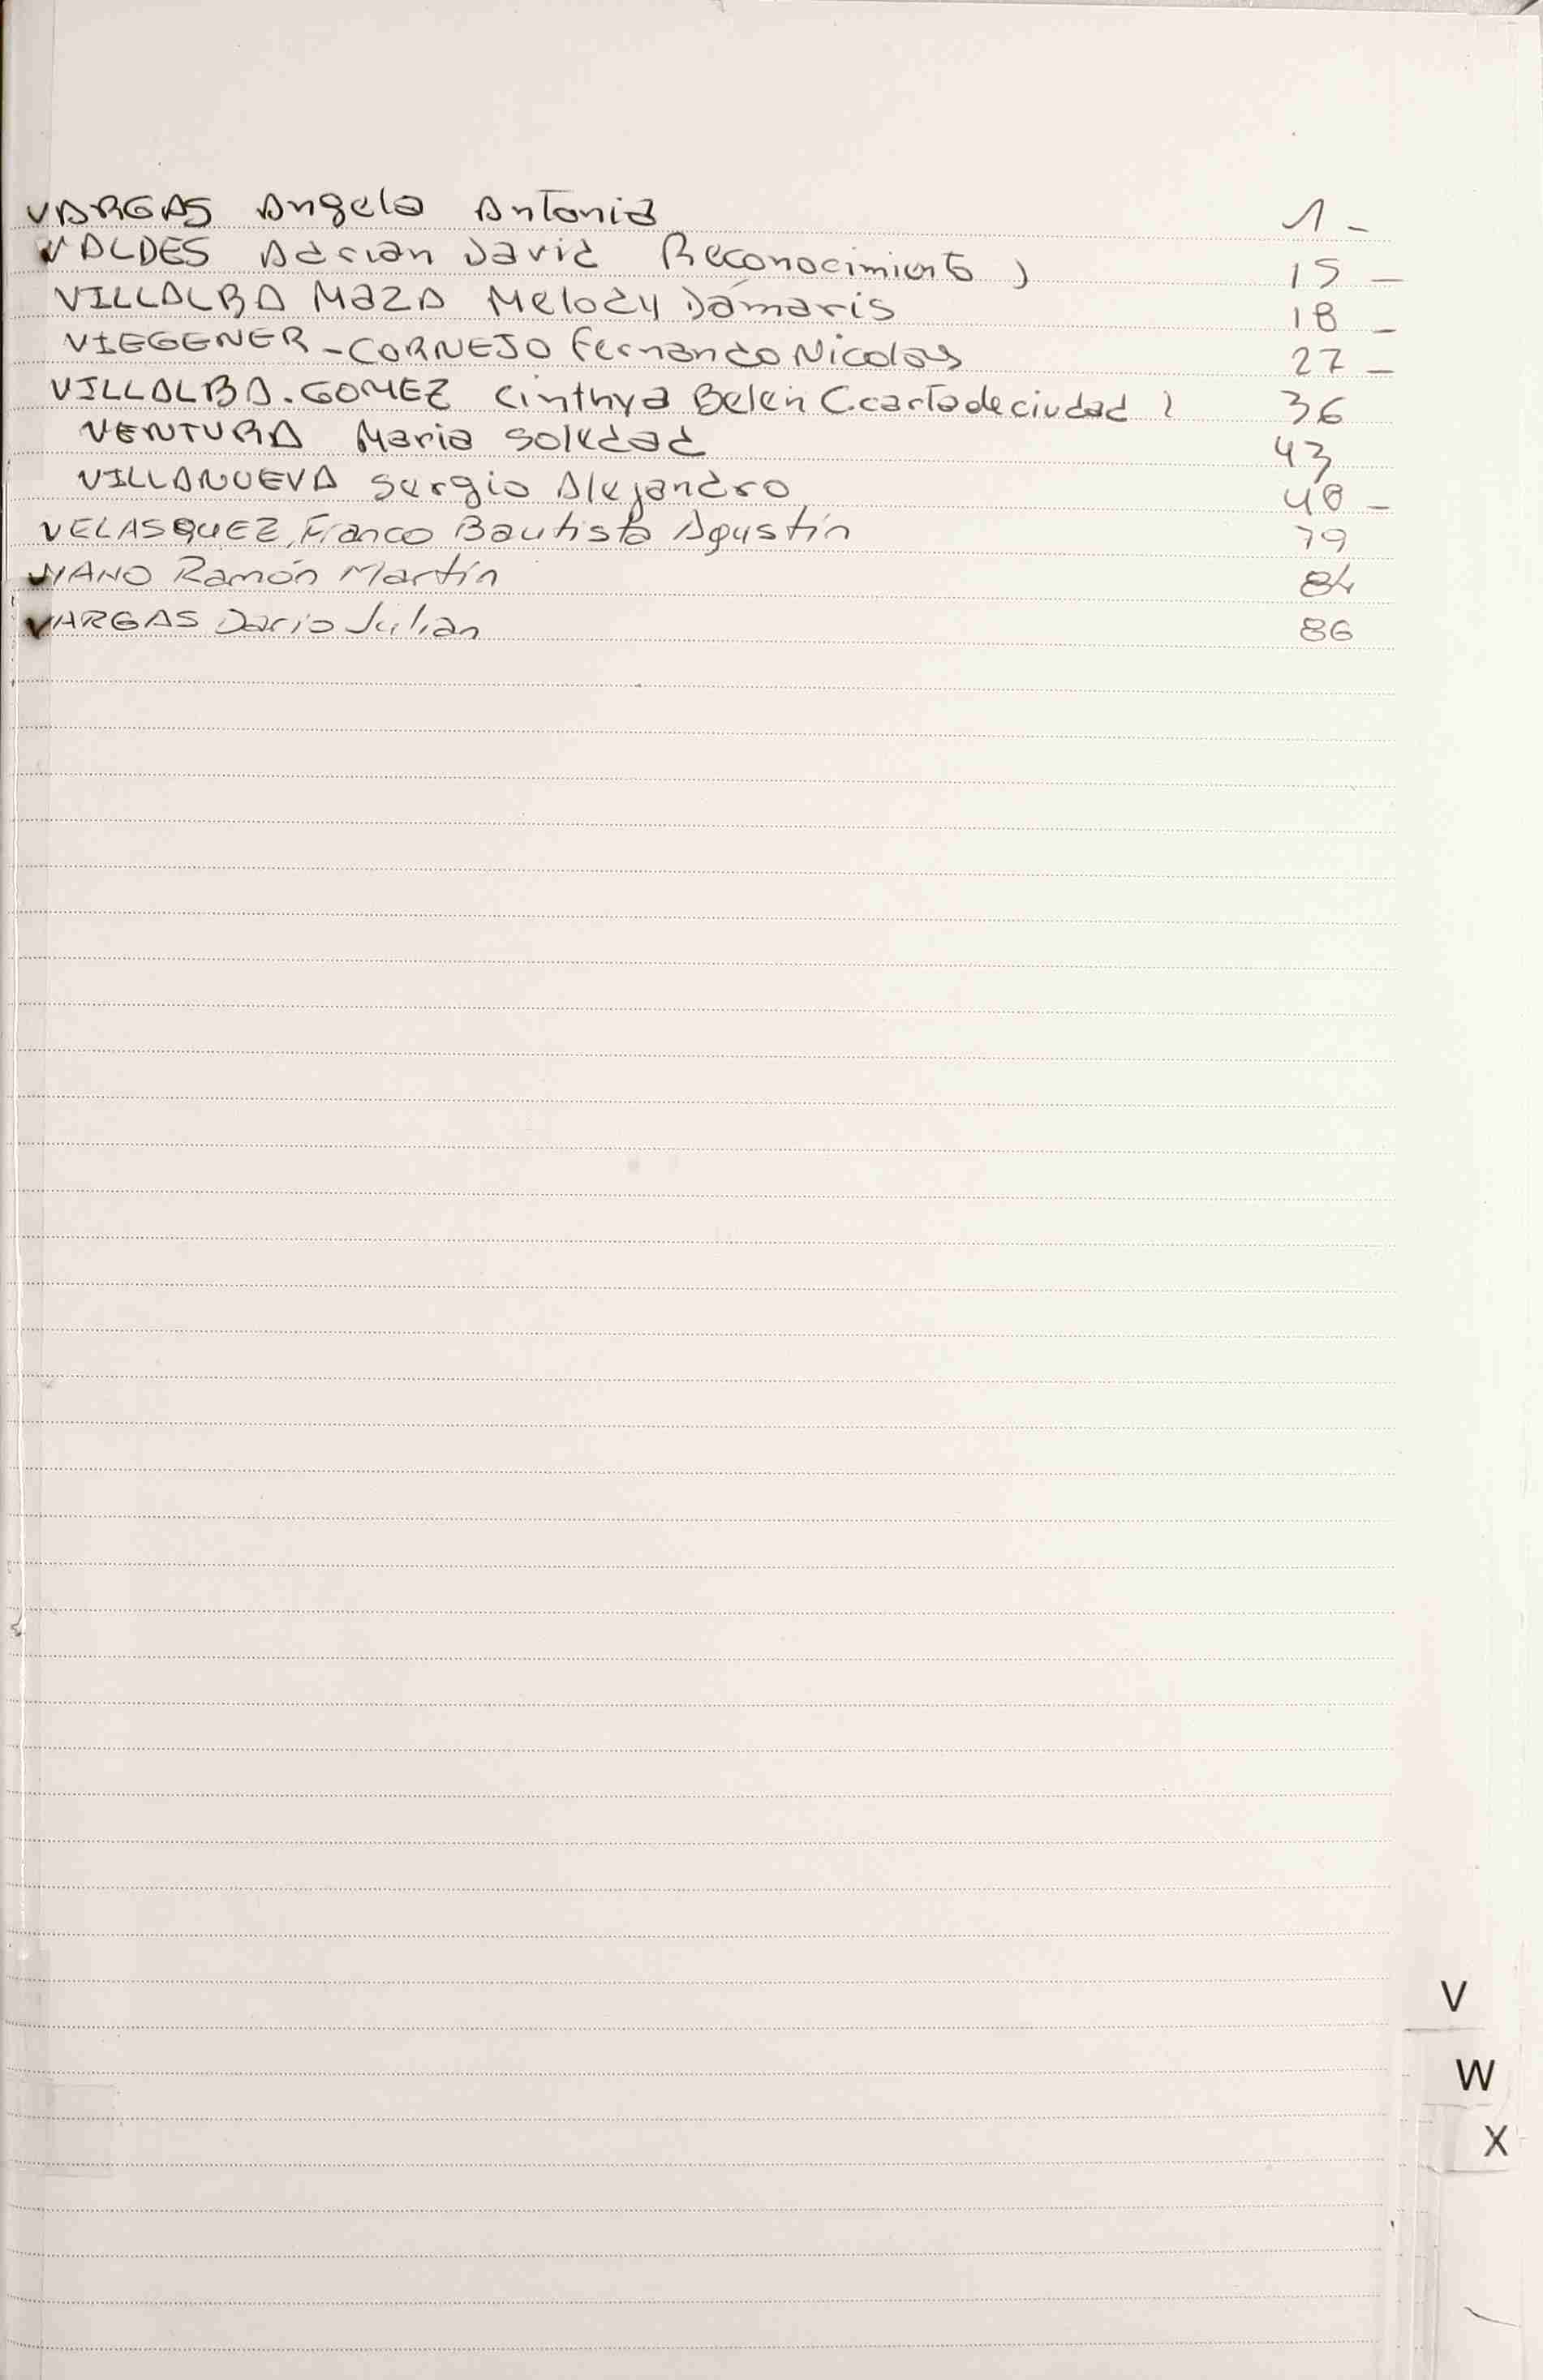 VARGAS Angela Antonia 1 -
VALDES Adrian David (Reconocimiento) 15 -
VILLALBA MAZA Melody Dámaris 18 -
VIEGENER - CORNEJO Fernando Nicolas 27 -
VILLALBA. GOMEZ Cinthya Belén (.carta de ciudad) 36
VENTURA Maria Soledad 43
VILLANUEVA Sergio Alejandro 48 -
VELASQUEZ, Franco Bautista Agustín 79
VIANO Ramón Martín 84
VARGAS Dario Julian 86
V
W
X